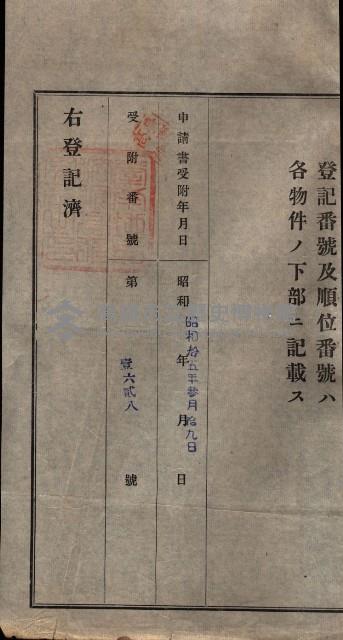 登記番號及順位番號ハ
各物件ノ下部ニ記載ス
申請書受附年月日 昭和 年 月 日
昭和拾五年參月拾九日
受附番號 第 號
壹六貳八
右登記濟